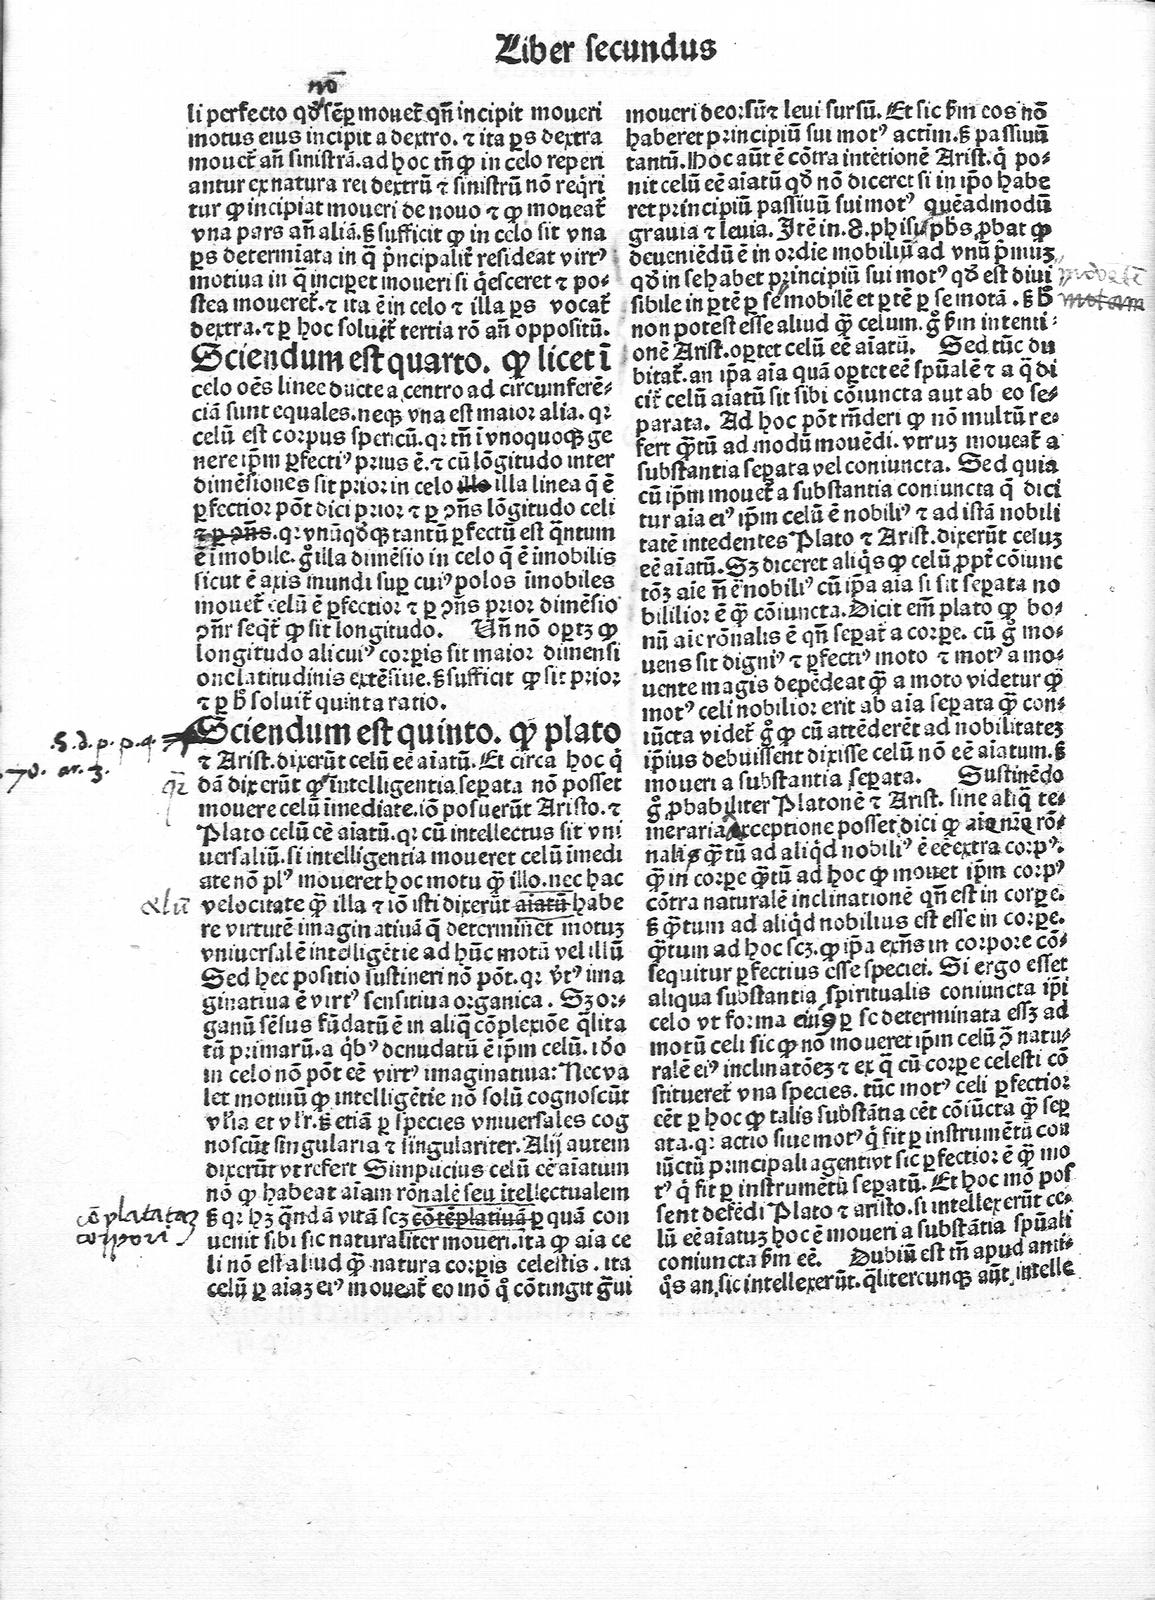 Liber secundus
nō
li perfecto qđ sēꝑ mouet̃ qn̄ incipit moueri
motus eius incipit a dextro. ⁊ ita ꝑs dextra
mouet̃ an̄ sinistrā. ad hoc tn̄ ꝙ in celo reperi
antur ex natura rei dextrū ⁊ sinistrū nō req̇ri
tur ꝙ incipiat moueri de nouo ⁊ ꝙ moueat̃
vna pars an̄ aliā. sꝫ sufficit ꝙ in celo sit vna
ꝑs determīata in q̄ pn̄cipalit̃ resideat virtꝰ
motiua in q̄ inciperet moueri si q̇esceret ⁊ po⸗
stea moueret̃. ⁊ ita ē in celo ⁊ illa ꝑs vocat̃
dextra. ⁊ ꝑ hoc soluit̃ tertia rō an̄ oppositū.
Sciendum est quarto. ꝙ licet ī
celo oēs linee ducte a centro ad circumferē⸗
ciā sunt equales. neqꝫ vna est maior alia. qꝛ
celū est corpus spericū. qꝛ tn̄ ī vnoquoqꝫ ge
nere ip̄m ꝑfectiꝰ prius ē. ⁊ cū lōgitudo inter
dimēsiones sit prior in celo illa illa linea q̄ ē
ꝑfectior pōt dici prior ⁊ ꝑ ꝯn̄s lōgitudo celi
⁊ ꝑ ꝯn̄s. qꝛ vnūqđqꝫ tantū ꝑfectū est q̄ntum
ē īmobile. g̊ illa dimēsio in celo q̄ ē īmobilis
sicut ē axis mundi suꝑ cuiꝰ polos īmobiles
mouet̃ celū ē ꝑfectior ⁊ ꝑ ꝯn̄s prior dimēsio
ꝯn̄r seqt̃ ꝙ sit longitudo. Un̄ nō oꝑtꝫ ꝙ
longitudo alicuiꝰ corꝑis sit maior dimensi
one latitudinis extēsiue. sꝫ sufficit ꝙ sit prior
⁊ ꝑ h̄ soluit̃ quinta ratio.
.S. d. p. p. q.
70. ar. 3.
Sciendum est quinto. ꝙ plato
⁊ Arist. dixerūt celū eē aīatū. Et circa hoc q̇
qꝛ
dā dixerūt ꝙ intelligentia seꝑata nō posset
mouere celū īmediate. iō posuerūt Aristo. ⁊
Plato celū eē aīatū. qꝛ cū intellectus sit vni
uersaliū. si intelligentia moueret celū īmedi
ate nō plꝰ moueret hoc motu q̄ꝫ illo. nec hac
celū
velocitate q̄ꝫ illa ⁊ iō isti dixerūt aīatū habe
re virtutē imaginatiuā q̄ determinet motuꝫ
vniuersalē intelligētie ad hūc motū vel illū
Sed hec positio sustineri nō pōt. qꝛ v̇tꝰ ima
ginatiua ē virtꝰ sensitiua organica. Sꝫ or⸗
ganū sēsus fūdatū ē in aliq̄ cōplexiōe q̄lita
tū primarū. a q̇bꝰ denudatū ē ip̄m celū. iđo
in celo nō pōt eē virtꝰ imaginatiua: Nec va
let motiuū ꝙ intelligētie nō solū cognoscūt
vlīa et vlr̄. sꝫ etiā ꝑ species vniuersales cog
noscūt singularia ⁊ singulariter. Alij autem
dixerūt vt refert Simplicius celū eē aīatum
nō ꝙ habeat aīam rōnalē seu ītellectualem
cōplatatā
corpori
sꝫ qꝛ hꝫ q̄ndā vitā scꝫ cōtēplatiuā ꝑ quā con
uenit sibi sic naturaliter moueri. ita ꝙ aīa ce
li nō est aliud q̄ꝫ natura corꝑis celestis. ita
celū ꝑ aīaꝫ eiꝰ moueat̃ eo mō q̊ cōtingit ḡui
moueri deorsū ⁊ leui sursū. Et sic ẜm eos nō
haberet principiū sui motꝰ actiuū. sꝫ passiuū
tantū. Hoc aūt ē cōtra intētionē Arist. q̇ po⸗
nit celū eē aīatū qđ nō diceret si in ip̄o habe
ret principiū passiuū sui motꝰ quēadmodū
grauia ⁊ leuia. Itē in. 8. phisi. pb̄s ꝓbat ꝙ
deueniēdū ē in ordīe mobiliū ad vnū p̄muꝫ
qđ in se habet principiū sui motꝰ qđ est diui
sibile in ꝑtē ꝑ se mobilē et ꝑtē ꝑ se motā. sꝫ h̄
motam
non potest esse aliud q̄ꝫ celum. g̊ ẜm intenti⸗
onē Arist. oꝑtet celū eē aīatū. Sed tūc du
bitat̃. an ip̄a aīa quā oꝑtet eē spūalē ⁊ a q̄ di
cit̃ celū aīatū sit sibi cōiuncta aut ab eo se⸗
parata. Ad hoc pōt rn̄deri ꝙ nō multū re⸗
fert q̄ꝫtū ad modū mouēdi. vtruꝫ moueat̃ a
substantia seꝑata vel coniuncta. Sed quia
cū ip̄m mouet̃ a substantia coniuncta q̄ dici
tur aīa eiꝰ ip̄m celū ē nobiliꝰ ⁊ ad istā nobili
tatē intedentes Plato ⁊ Arist. dixerūt celuꝫ
eē aīatū. Sꝫ diceret aliq̇s ꝙ celū ꝓpt̃ cōiunc
tōꝫ aīe nō ē nobiliꝰ cū ip̄a aīa si sit seꝑata no
bililior ē q̄ꝫ cōiuncta. Dicit em̄ plato ꝙ bo⸗
nū aīe rōnalis ē qn̄ seꝑat̃ a corꝑe. cū g̊ mo⸗
uens sit digniꝰ ⁊ ꝑfectiꝰ moto ⁊ motꝰ a mo⸗
uente magis depēdeat q̄ꝫ a moto videtur ꝙ
motꝰ celi nobilior erit ab aīa seꝑata q̄ꝫ con⸗
iūcta videt̃ g̊ ꝙ cū attēderēt ad nobilitateꝫ
ip̄ius debuissent dixisse celū nō eē aīatum. sꝫ
moueri a substantia seꝑata. Sustinēdo
g̊ ꝓbabiliter Platonē ⁊ Arist. sine aliq̄ te⸗
meraria exceptione posset dici ꝙ aīa nr̄a rō⸗
nalis q̄ꝫtū ad aliq̇d nobiliꝰ ē eē extra corpꝰ.
q̄ꝫ in corꝑe q̄ꝫtū ad hoc ꝙ mouet ip̄m corpꝰ
cōtra naturalē inclinationē qn̄ est in corꝑe.
sꝫ q̄ꝫtum ad aliq̇d nobilius est esse in corꝑe.
q̄ꝫtum ad hoc scꝫ. ꝙ ip̄a exn̄s in corpore cō⸗
sequitur ꝑfectius esse speciei. Si ergo esset
aliqua substantia spiritualis coniuncta ip̄i
celo vt forma eiꝰ ꝑ se determinata esset ad
motū celi sic ꝙ nō moueret ip̄m celū ꝯ̄ natu⸗
ralē eiꝰ inclinatōeꝫ ⁊ ex q̄ cū corꝑe celesti cō
stitueret̃ vna species. tūc motꝰ celi ꝑfectior
eēt ꝑ hoc ꝙ talis substātia eēt cōiūcta q̄ꝫ seꝑ
ata. qꝛ actio siue motꝰ q̇ fit ꝑ instrumētū con
iūctū principali agenti vt sic ꝑfectior ē q̄ꝫ mo
tꝰ q̇ fit ꝑ instrumētū seꝑatū. Et hoc mō pos
sent defēdi Plato ⁊ aristo. si intellexerūt ce⸗
lū eē aīatuꝫ hoc ē moueri a substātia spūali
coniuncta ẜm eē. Dubiū est tn̄ apud anti⸗
q̊s an sic intellexerūt. q̄litercunqꝫ aūt intelle